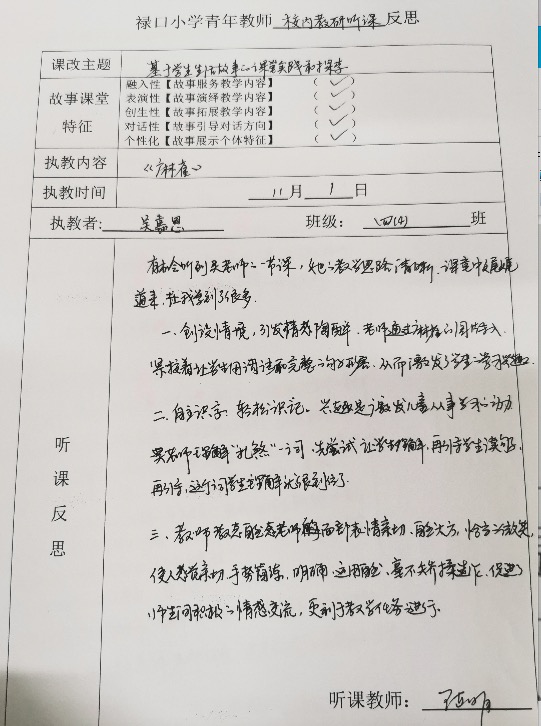 禄口小学青年教师 校内教研听课 反思
课改主题 基于学生生活故事的课堂实践和探索
故事课堂特征
融入性【故事服务教学内容】 （ ✓ ）
表演性【故事演绎教学内容】 （ ✓ ）
创生性【故事拓展教学内容】 （ ✓ ）
对话性【故事引导对话方向】 （ ✓ ）
个性化【故事展示个体特征】 （ ✓ ）
执教内容 《麻雀》
执教时间 11 月 1 日
执教者: 吴嘉恩 班级: 四(4) 班
听课反思
有幸听到吴老师的一节课，她的教学思路清晰，课堂中娓娓
道来，让我学到了很多。
一、创设情境，引发情感陶醉。老师通过麻雀的图片导入
紧接着让学生用词语和完整的句子描述，从而激发了学生的学习兴趣。
二、自主识字，轻松识记。兴趣是激发儿童从事学习的动力
吴老师理解"扎煞"一词，先尝试让学生理解，再引导学生读句，
再引导，这个词学生理解就很到位了。
三、教师教态自然 老师面部表情亲切、自然大方，恰当的微笑，
使人感觉亲切，手势简练，明确，运用自然，毫不矫揉造作，促进了
师生间积极的情感交流，更利于教学任务进行。
听课教师: